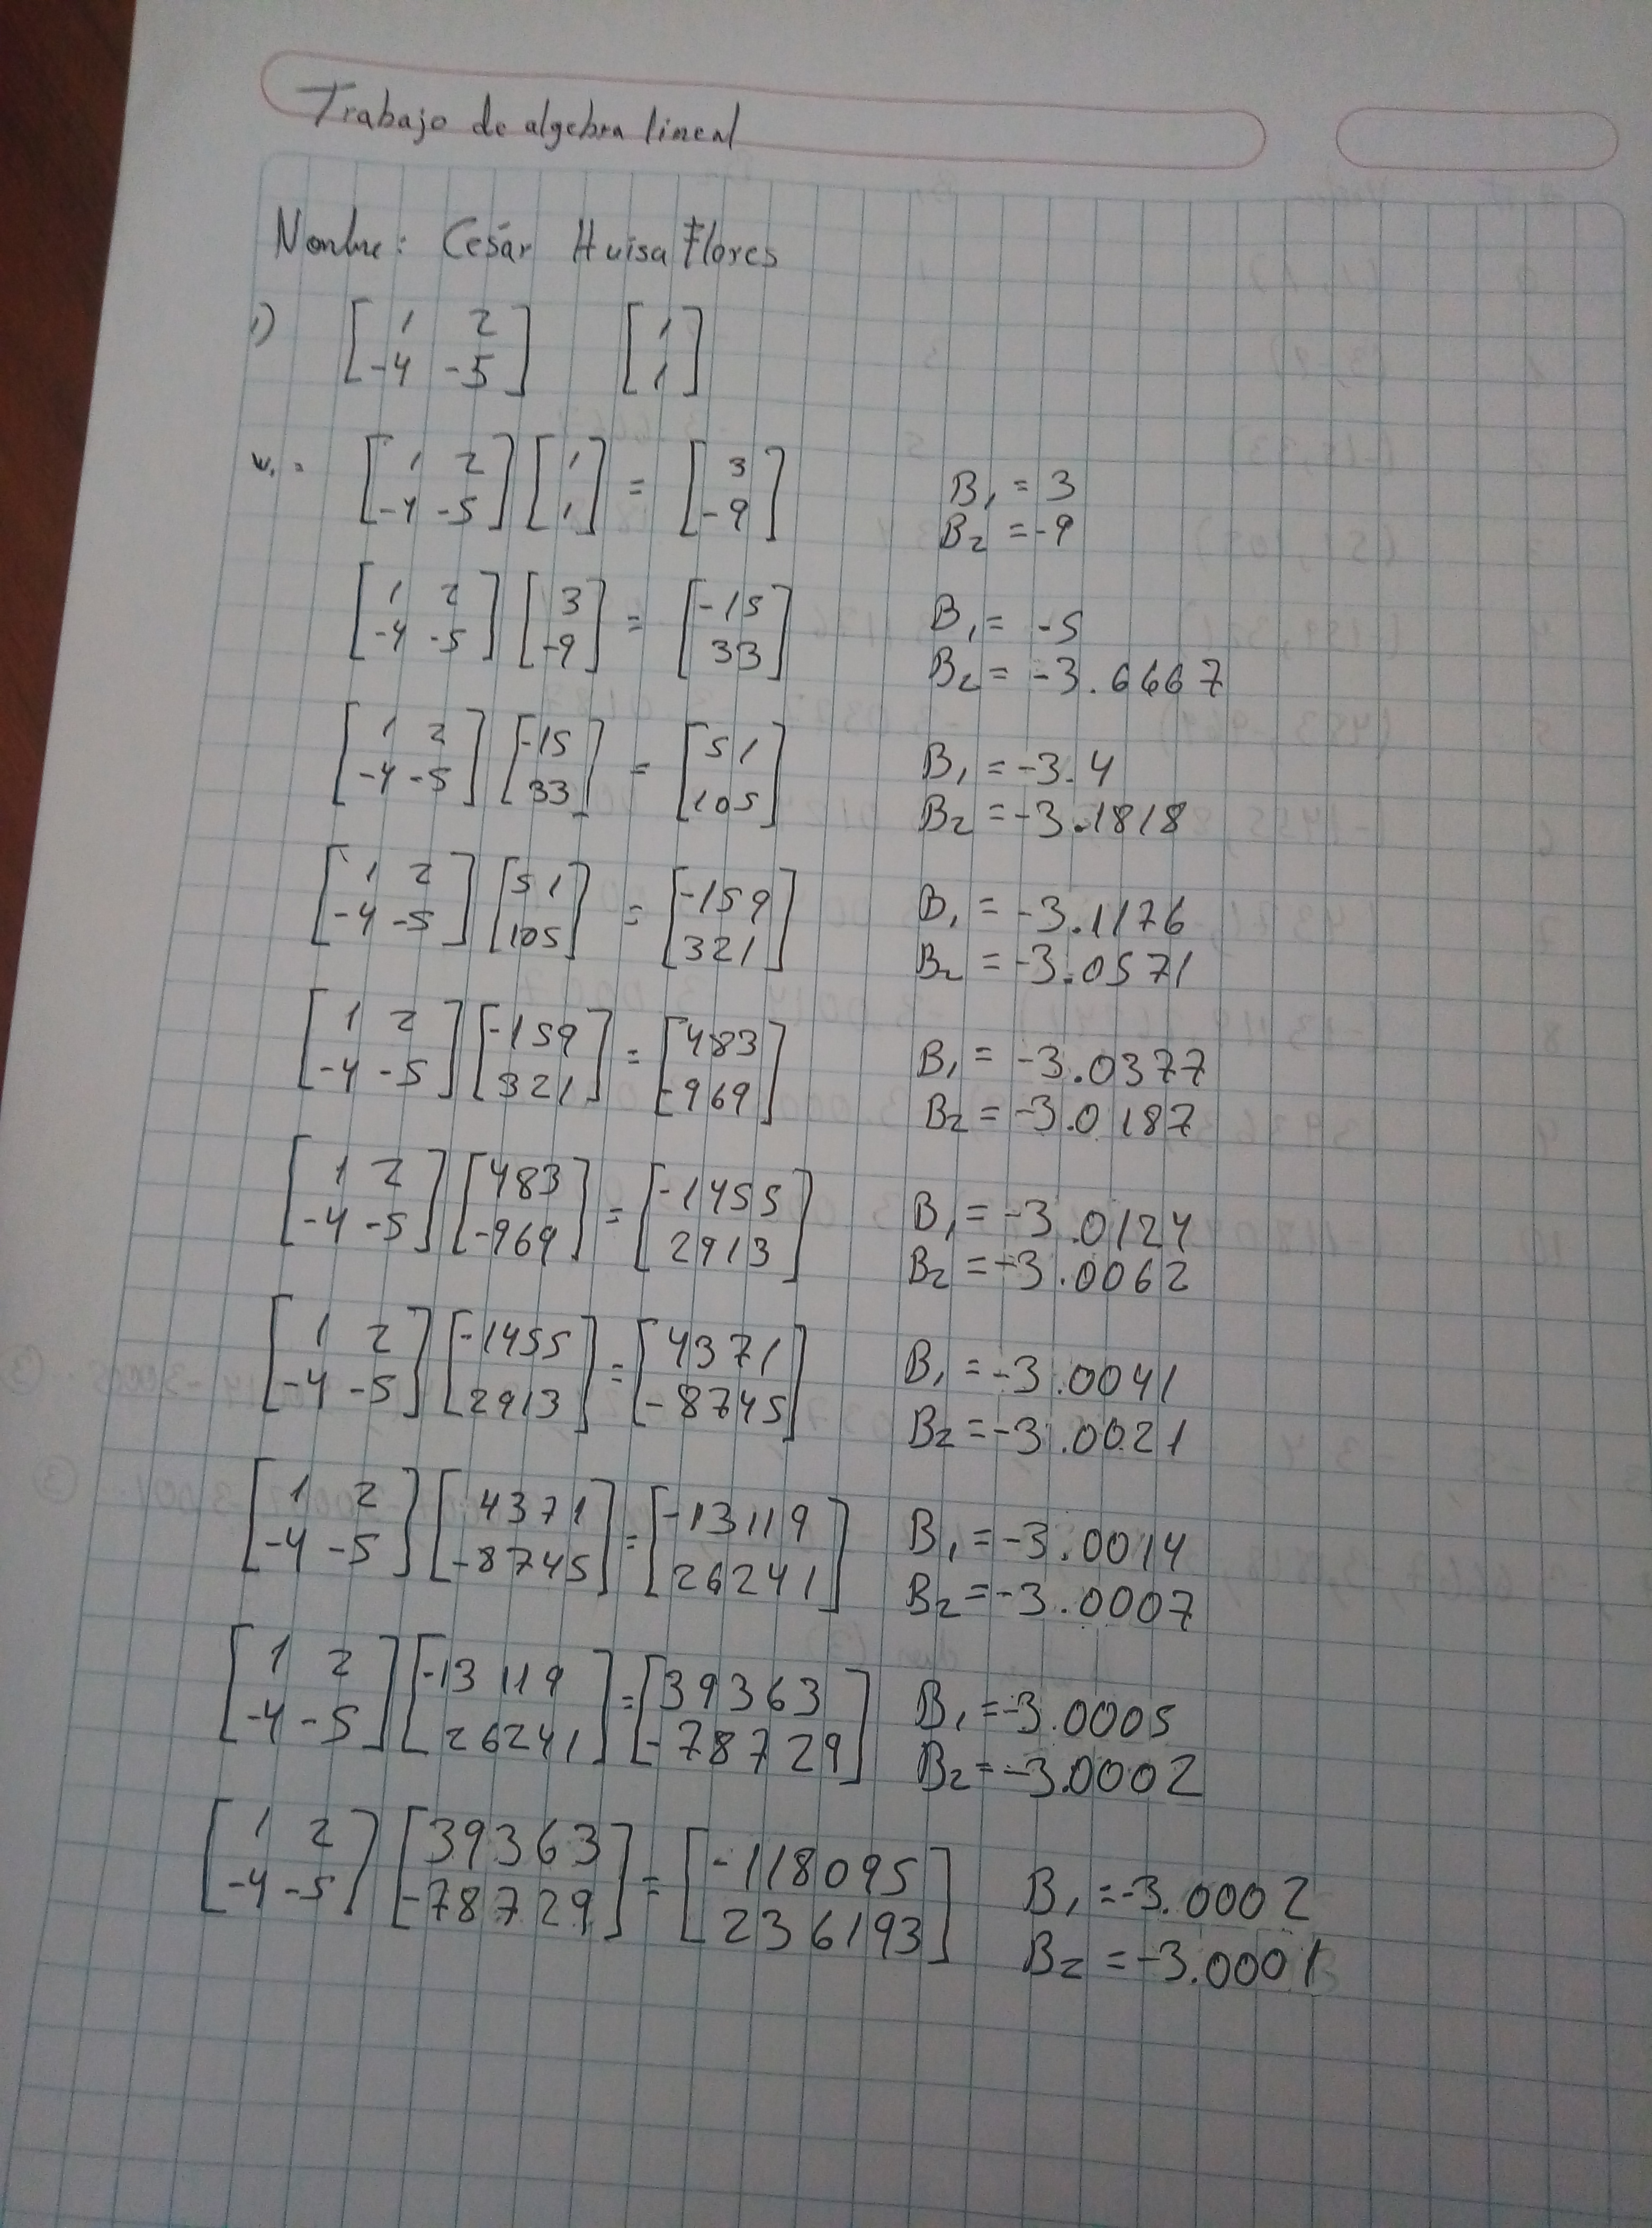 Trabajo de algebra lineal
Nombre: Cesár Huisa Flores
1) [1 2; -4 -5] [1; 1]
w₁ = [1 2; -4 -5] [1; 1] = [3; -9] B₁ = 3
B₂ = -9
[1 2; -4 -5] [3; -9] = [-15; 33] B₁ = -5
B₂ = -3.6667
[1 2; -4 -5] [-15; 33] = [51; 105] B₁ = -3.4
B₂ = -3.1818
[1 2; -4 -5] [51; 105] = [-159; 321] B₁ = -3.1176
B₂ = -3.0571
[1 2; -4 -5] [-159; 321] = [483; -969] B₁ = -3.0377
B₂ = -3.0187
[1 2; -4 -5] [483; -969] = [-1455; 2913] B₁ = -3.0124
B₂ = -3.0062
[1 2; -4 -5] [-1455; 2913] = [4371; -8745] B₁ = -3.0041
B₂ = -3.0021
[1 2; -4 -5] [4371; -8745] = [-13119; 26241] B₁ = -3.0014
B₂ = -3.0007
[1 2; -4 -5] [-13119; 26241] = [39363; -78729] B₁ = -3.0005
B₂ = -3.0002
[1 2; -4 -5] [39363; -78729] = [-118095; 236193] B₁ = -3.0002
B₂ = -3.0001